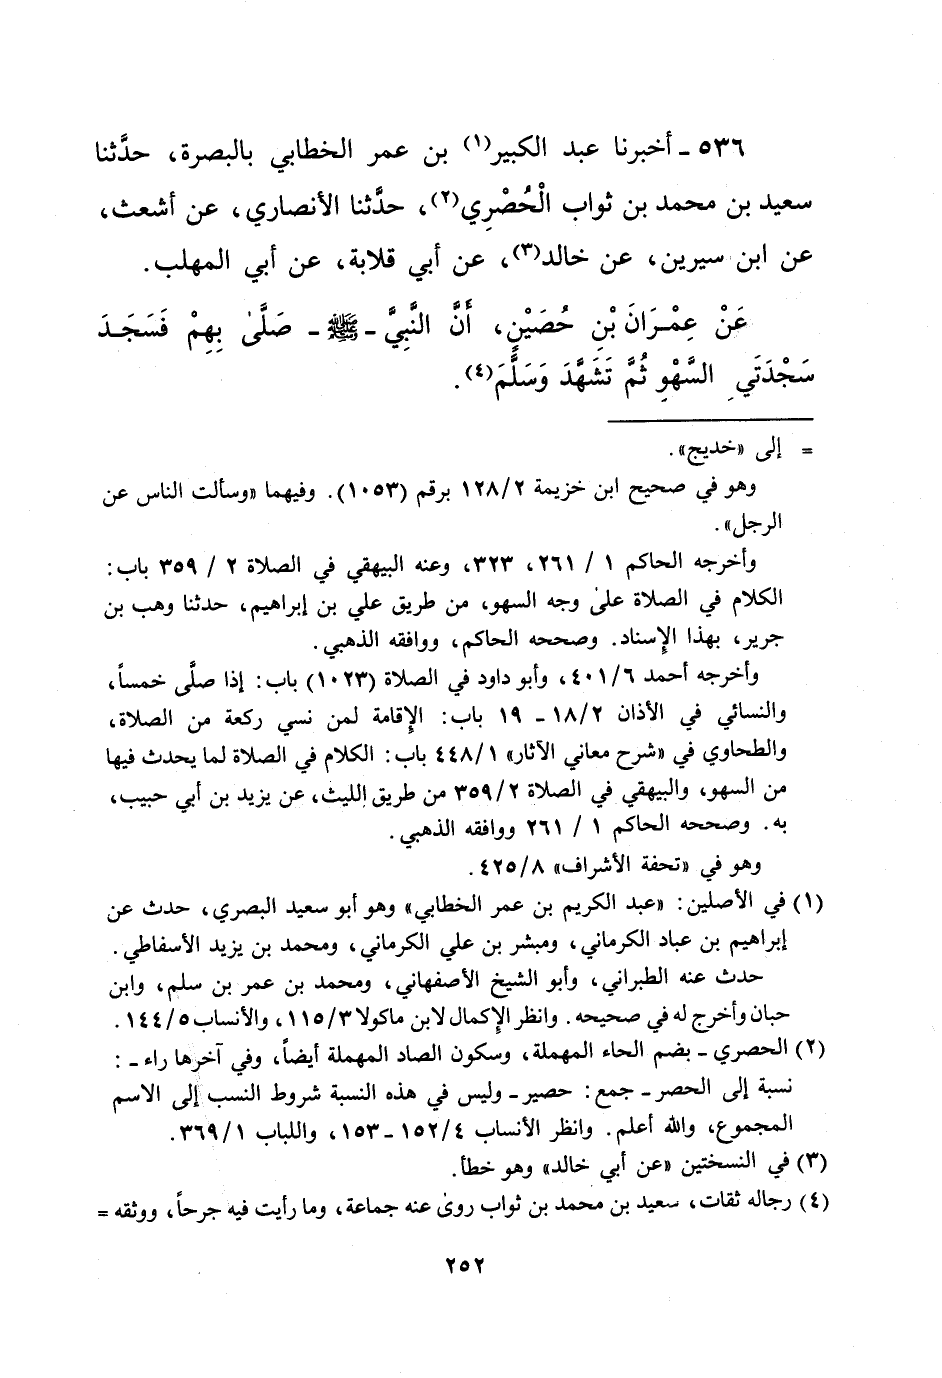 ٥٣٦ ـ أخبرنا عبد الكبير(١) بن عمر الخطابي بالبصرة، حدَّثنا
سعيد بن محمد بن ثواب الْحُصْرِي(٢)، حدَّثنا الأنصاري، عن أشعث،
عن ابن سيرين، عن خالد(٣)، عن أبي قلابة، عن أبي المهلب.
عَنْ عِمْـرَانَ بْنِ حُصَيْنٍ، أَنَّ النَّبِيَّ ـ ﷺ ـ صَلَّىٰ بِهِمْ فَسَجَـدَ
سَجْدَتَي السَّهْوِ ثُمَّ تَشَهَّدَ وَسَلَّمَ(٤).
= إلى «خديج».
وهو في صحيح ابن خزيمة ١٢٨/٢ برقم (١٠٥٣). وفيهما «وسألت الناس عن
الرجل».
وأخرجه الحاكم ١ / ٢٦١، ٣٢٣، وعنه البيهقي في الصلاة ٢ / ٣٥٩ باب:
الكلام في الصلاة علىٰ وجه السهو، من طريق علي بن إبراهيم، حدثنا وهب بن
جرير، بهذا الإسناد. وصححه الحاكم، ووافقه الذهبي.
وأخرجه أحمد ٤٠١/٦، وأبو داود في الصلاة (١٠٢٣) باب: إذا صلَّى خمساً،
والنسائي في الأذان ١٨/٢ ـ ١٩ باب: الإقامة لمن نسي ركعة من الصلاة،
والطحاوي في «شرح معاني الآثار» ٤٤٨/١ باب: الكلام في الصلاة لما يحدث فيها
من السهو، والبيهقي في الصلاة ٣٥٩/٢ من طريق الليث، عن يزيد بن أبي حبيب،
به. وصححه الحاكم ١ / ٢٦١ ووافقه الذهبي.
وهو في «تحفة الأشراف» ٤٢٥/٨.
(١) في الأصلين: «عبد الكريم بن عمر الخطابي» وهو أبو سعيد البصري، حدث عن
إبراهيم بن عباد الكرماني، ومبشر بن علي الكرماني، ومحمد بن يزيد الأسفاطي.
حدث عنه الطبراني، وأبو الشيخ الأصفهاني، ومحمد بن عمر بن سلم، وابن
حبان وأخرج له في صحيحه. وانظر الإكمال لابن ماكولا ١١٥/٣، والأنساب ١٤٤/٥.
(٢) الحصري ـ بضم الحاء المهملة، وسكون الصاد المهملة أيضاً، وفي آخرها راء ـ:
نسبة إلى الحصر ـ جمع: حصير ـ وليس في هذه النسبة شروط النسب إلى الاسم
المجموع، والله أعلم. وانظر الأنساب ١٥٢/٤ ـ ١٥٣، واللباب ٣٦٩/١.
(٣) في النسختين «عن أبي خالد» وهو خطأ.
(٤) رجاله ثقات، سعيد بن محمد بن ثواب روىٰ عنه جماعة، وما رأيت فيه جرحاً، ووثقه =
٢٥٢